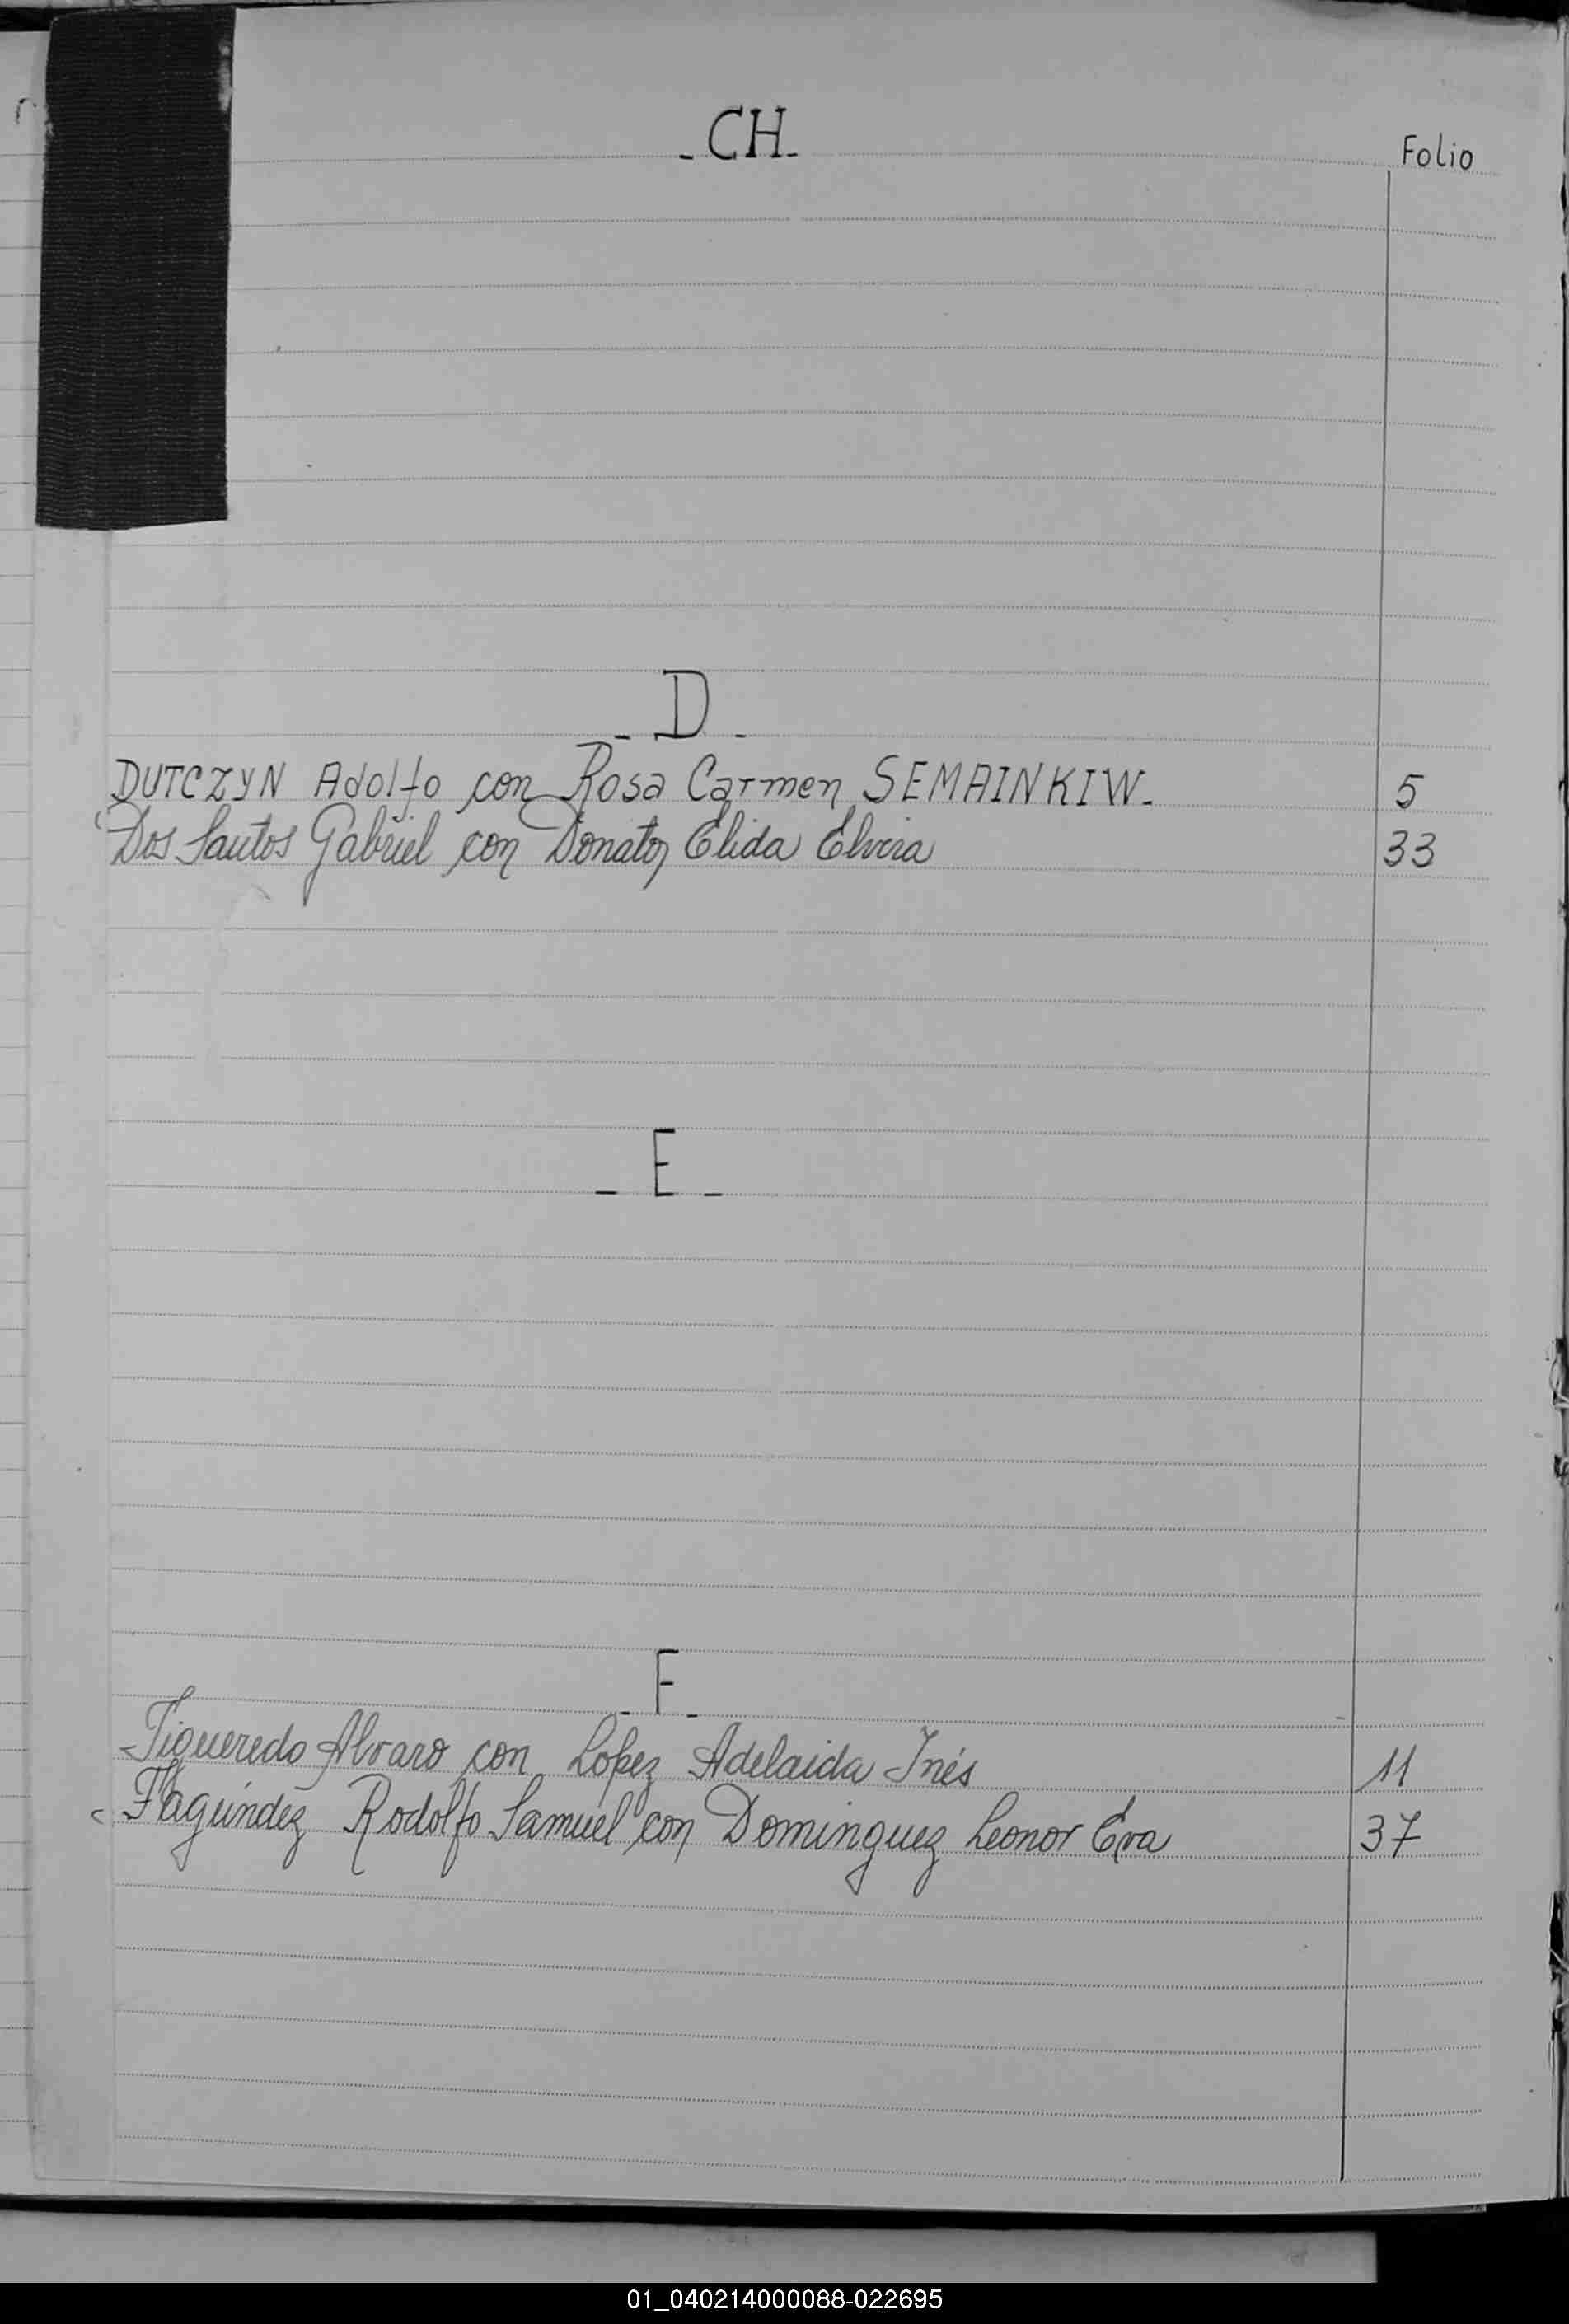 - CH -
Folio
- D -
DUTCZYN Adolfo con Rosa Carmen SEMAINKIW. 5
Dos Santos Gabriel con Donato Elida Elvira 33
- E -
- F -
Figueredo Alvaro con Lopez Adelaida Inés 11
Fagúndez Rodolfo Samuel con Dominguez Leonor Eva 37
01_040214000088-022695